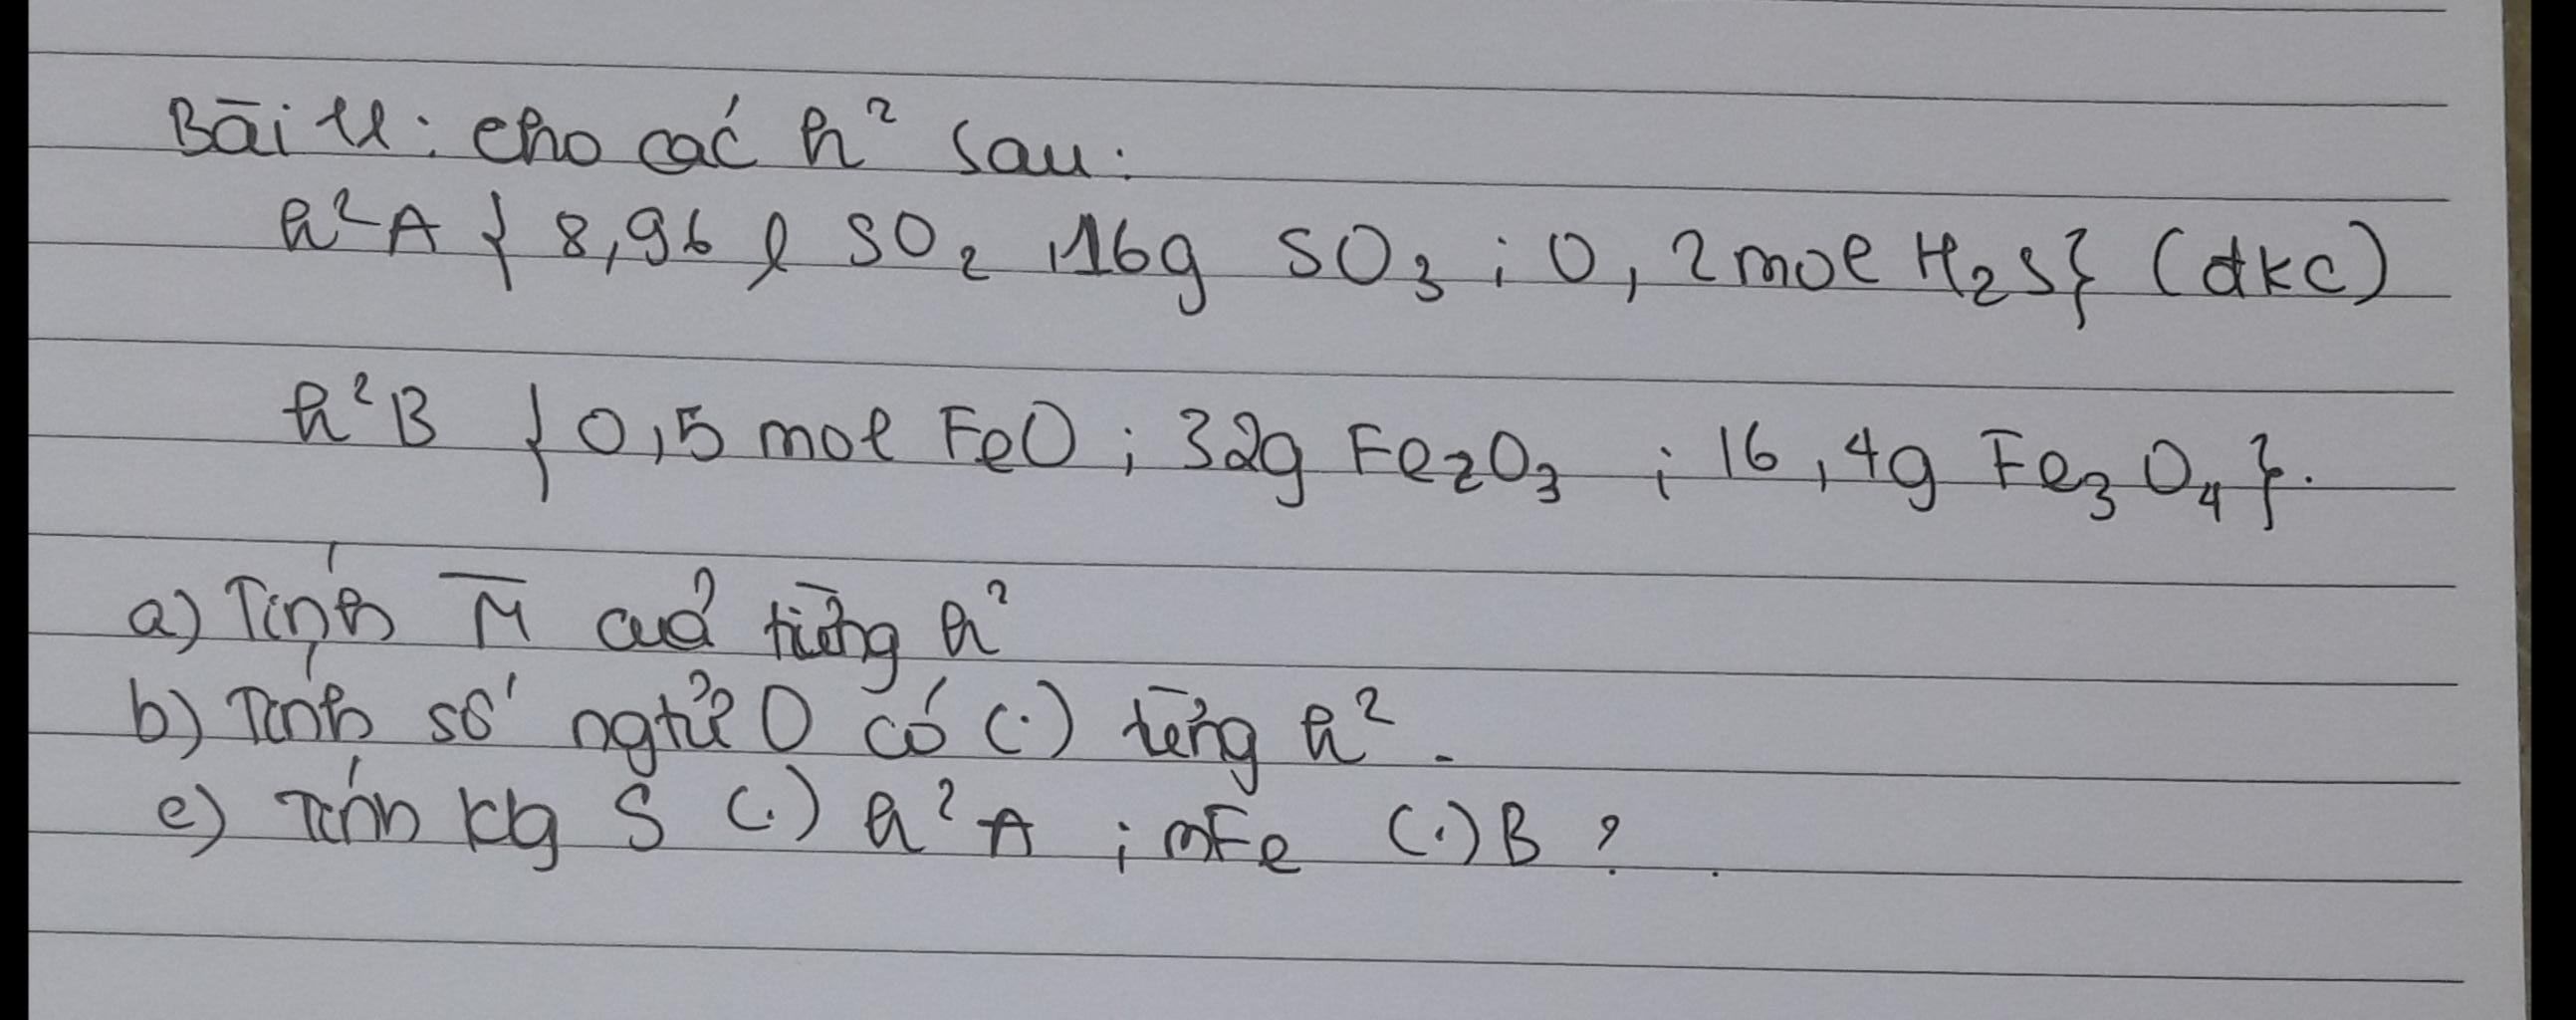 Bài 4: cho các h² sau:
h² A { 8,96 l SO₂, 16g SO₃; 0,2 mol H₂S } (đkc)
h² B { 0,5 mol FeO; 32g Fe₂O₃; 16,4g Fe₃O₄ }.
a) Tính M̅ của từng h²
b) Tính số ngtử O có (.) từng h².
c) Tính klg S (.) h² A; mFe (.) B?